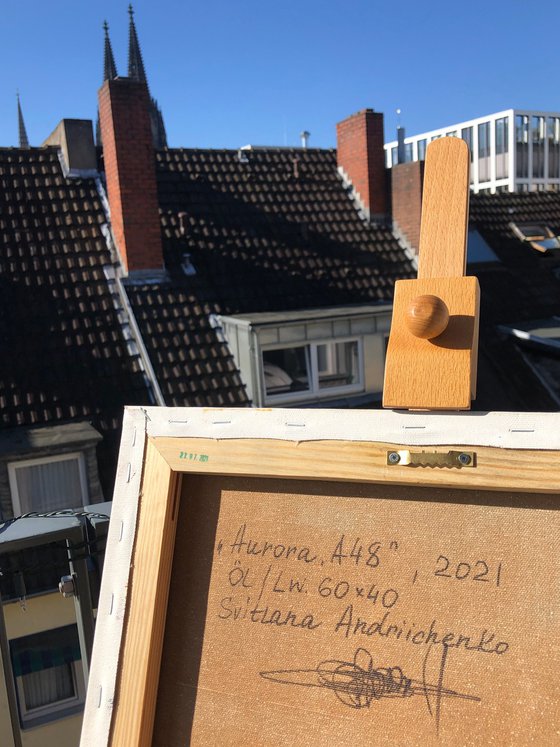 23.07.2021
„Aurora, A48", 2021
ÖL/Lw. 60×40
Svitlana Andriichenko